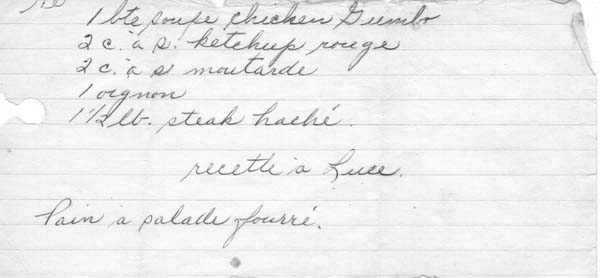 1 bte soupe chicken Gumbo
2 c. à s. ketchup rouge
2 c. à s moutarde
1 oignon
1 1/2 lb. steak haché.
recette à Luce.
Pain à salade fourré.